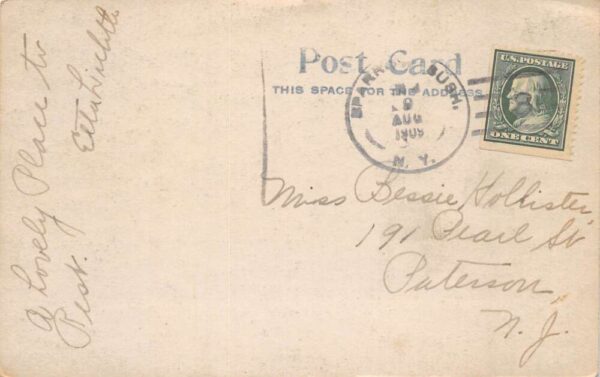 A Lovely Place to
Rest.
Post Card
THIS SPACE FOR THE ADDRESS
SPARROW BUSH,
9
AUG
1909
N. Y.
U.S. POSTAGE
ONE CENT
Miss Bessie Hollister,
191 Pearl St
Paterson
N. J.